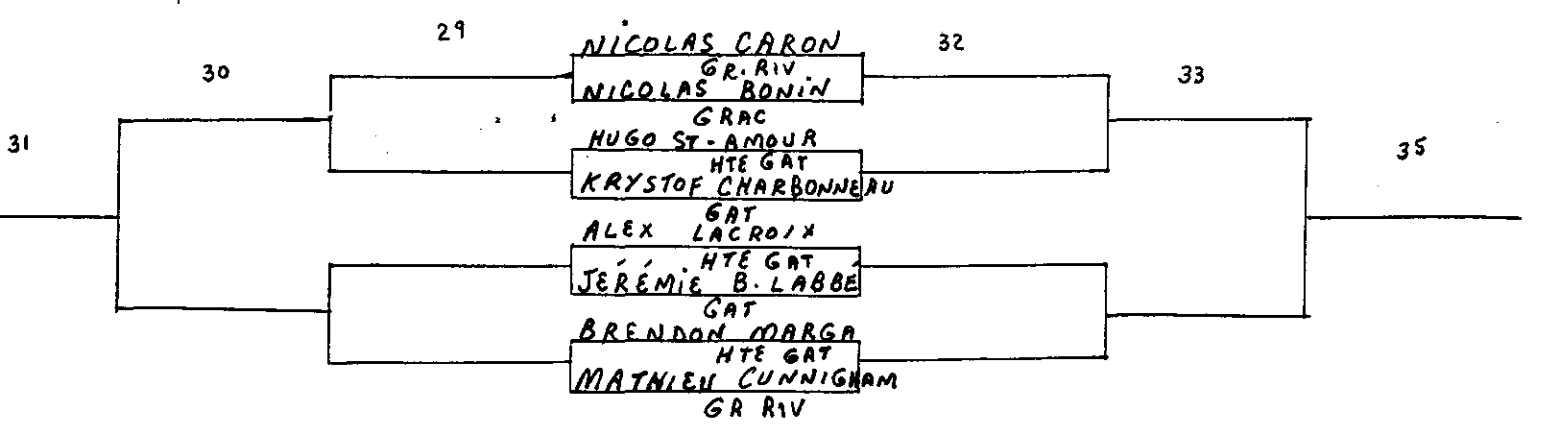 29
NICOLAS CARON
32
30
GR. RIV
33
NICOLAS BONIN
GRAC
31
HUGO ST-AMOUR
35
HTE GAT
KRYSTOF CHARBONNEAU
GAT
ALEX LACROIX
HTE GAT
JÉRÉMIE B. LABBÉ
GAT
BRENDON MARGA
HTE GAT
MATHIEU CUNNIGHAM
GR RIV